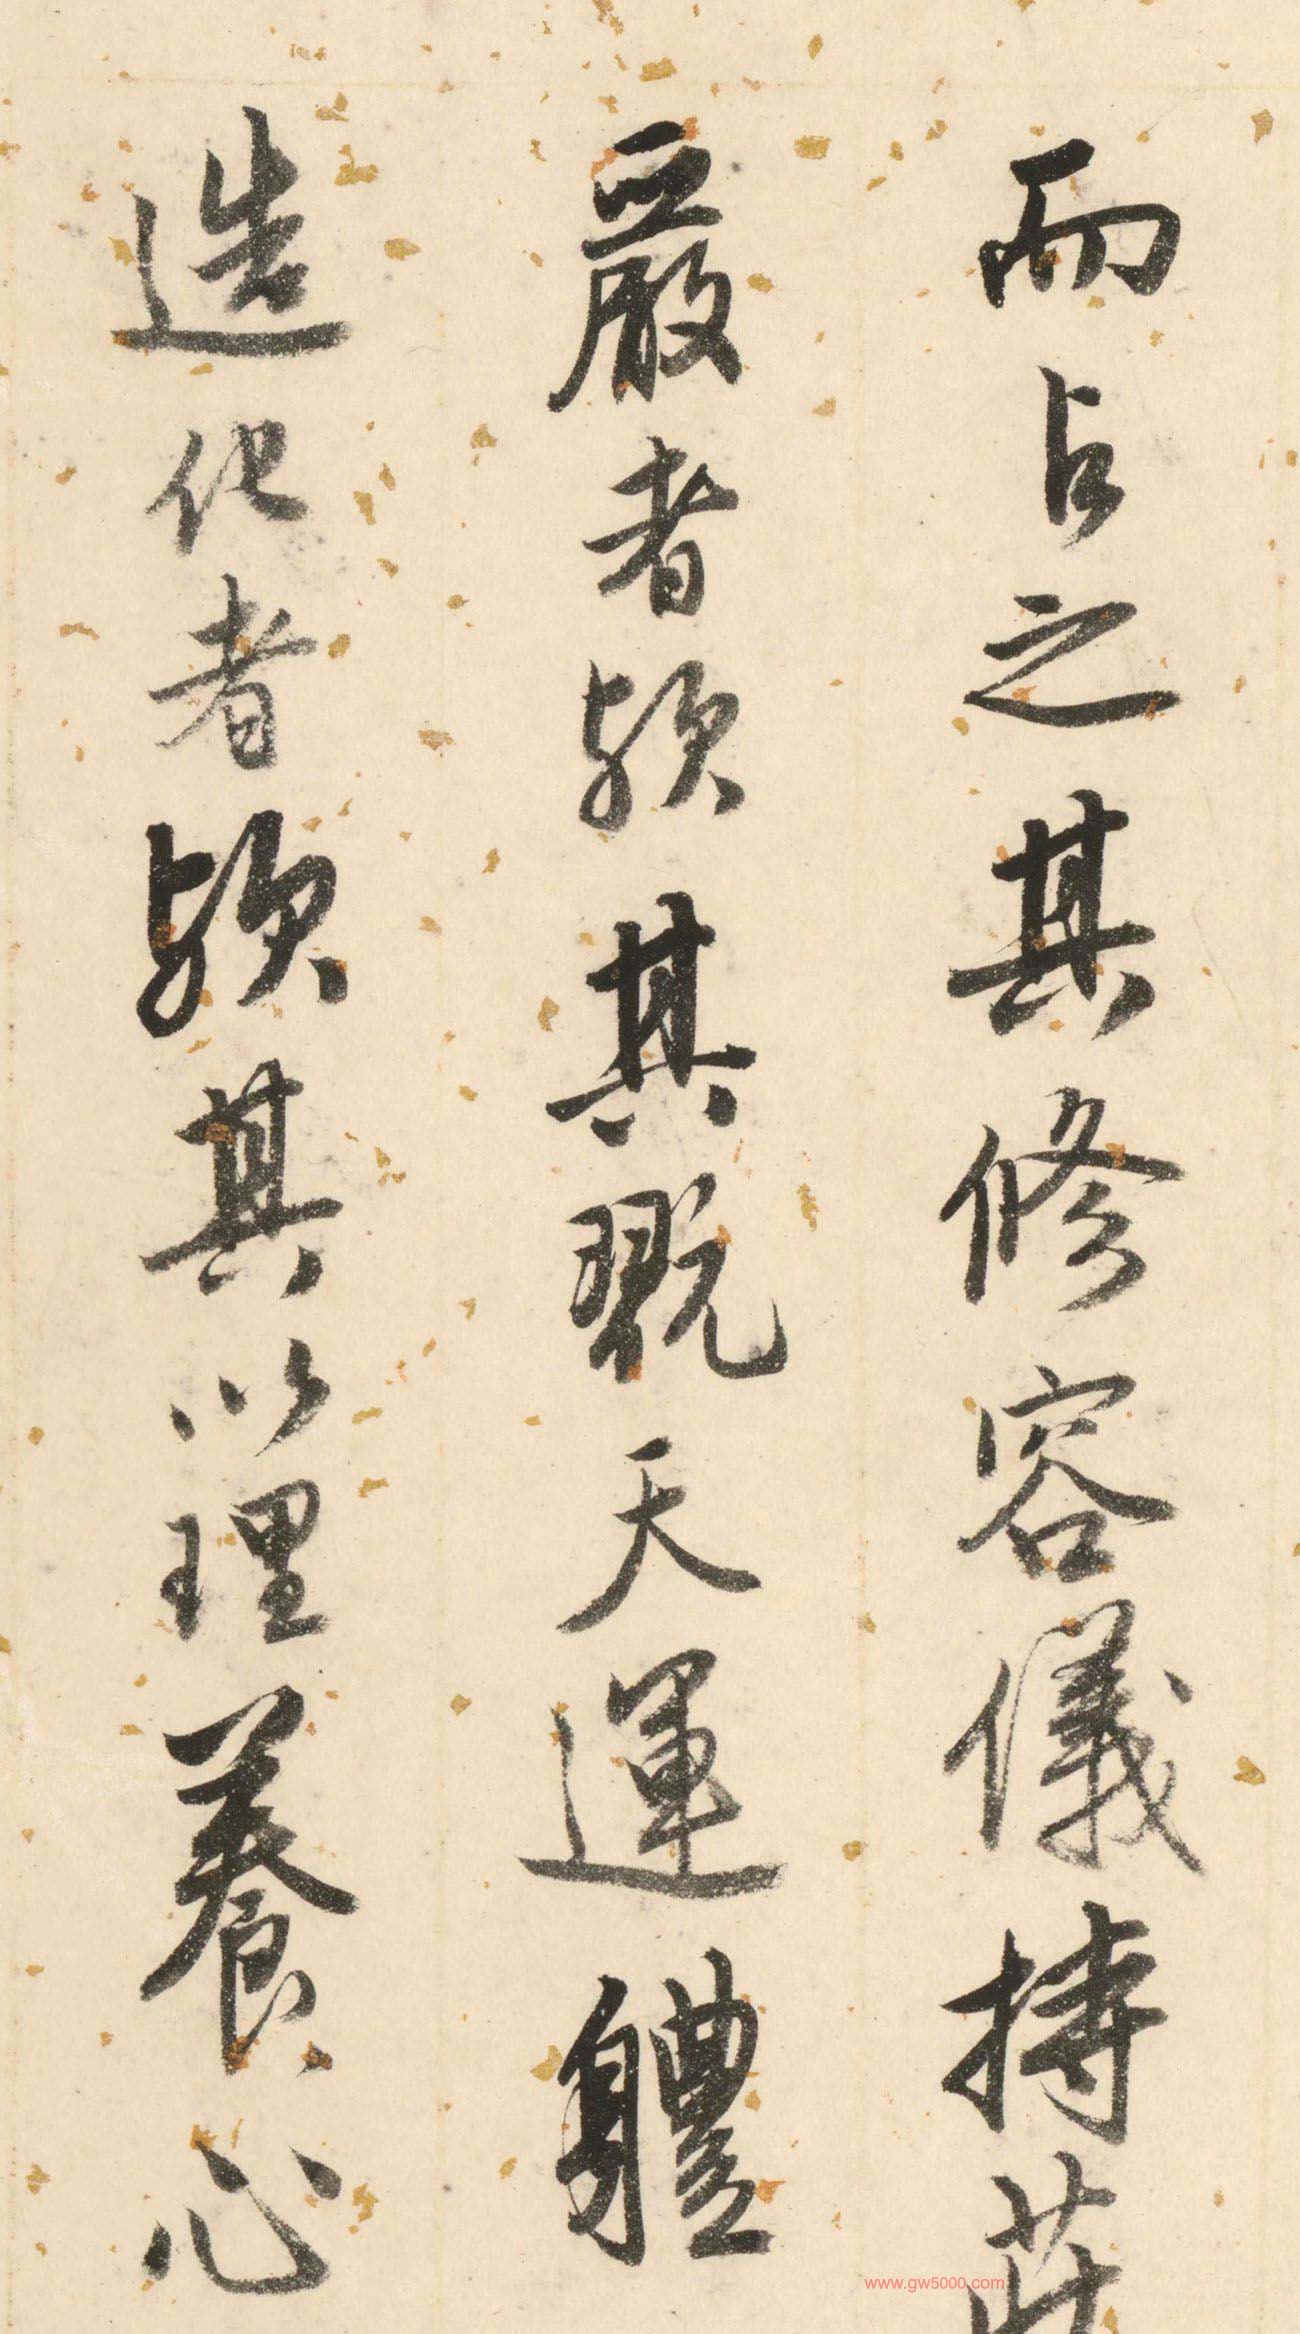 而占之其修容儀持莊
嚴者歟其翫天運體
造化者歟其以理養心
www.gw5000.com